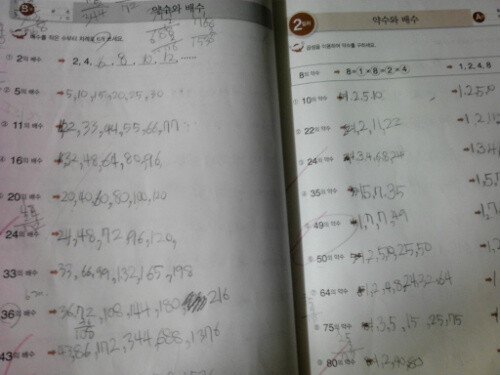 약수와 배수
배수를 적은 수부터 차례로 쓰세요.
① 2의 배수 → 2, 4, 6, 8, 10, 12, ......
② 5의 배수 → 5, 10, 15, 20, 25, 30
③ 11의 배수 → 22, 33, 44, 55, 66, 77
④ 16의 배수 → 32, 48, 64, 80, 96
20의 배수 → 20, 40, 60, 80, 100, 120
24의 배수 → 24, 48, 72, 96, 120,
33의 배수 → 33, 66, 99, 132, 165, 198
36의 배수 → 36, 72, 108, 144, 180, 216
43의 배수 → 43, 86, 172, 344, 688, 1376
2 약수와 배수
곱셈을 이용하여 약수를 구하세요.
8의 약수 → 8×1×8×2×4 → 1, 2, 4, 8
① 10의 약수 → 1, 2, 5, 10 → 1, 2, 5, 10
② 22의 약수 → 1, 2, 11, 22 → 1, 2, 11
③ 24의 약수 → 1, 3, 4, 6, 8, 24
④ 35의 약수 → 1, 5, 7, 35 → 1, 5, 7
⑤ 49의 약수 → 1, 7, 7, 49 → 1, 7
⑥ 50의 약수 → 1, 2, 5, 10, 25, 50
⑦ 64의 약수 → 1, 2, 4, 8, 24, 32, 64
⑧ 75의 약수 → 1, 3, 5, 15, 25, 75
⑨ 80의 약수